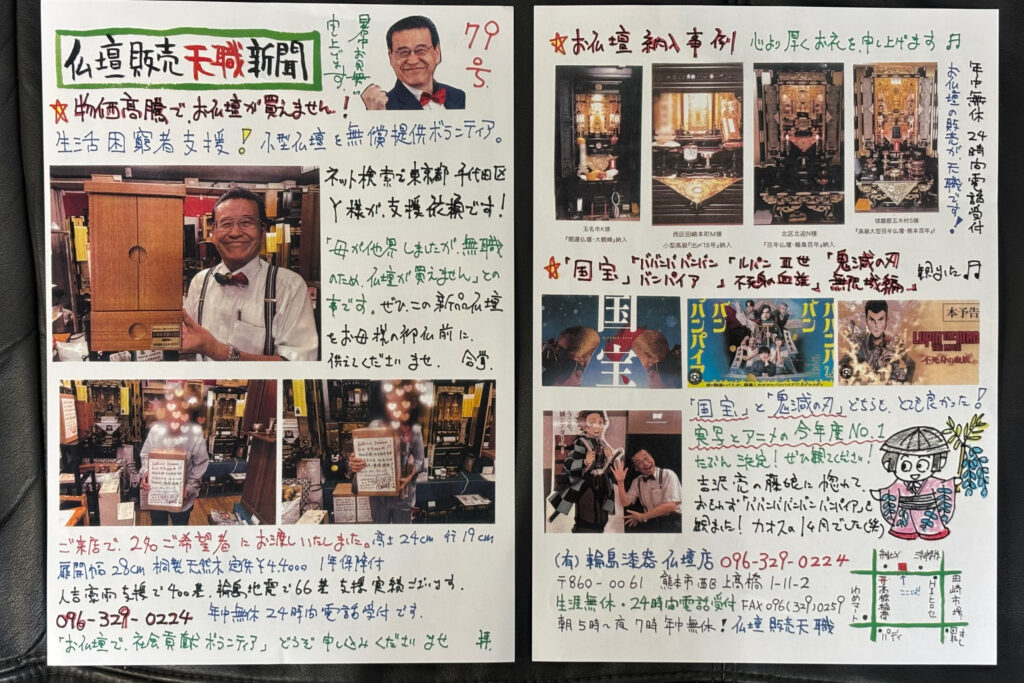 仏壇販売天職新聞
暑中お見舞
申し上げます。
79
号.
☆物価高騰で、お仏壇が買えません。！
生活困窮者支援！小型仏壇を無償提供ボランティア。
ネット検索で東京都千代田区
Y様が、支援依頼です！
「母が他界しましたが、無職
のため、仏壇が買えません」との
事です。ぜひ、この新品仏壇
をお母様の御仏前に、
供えてくださいませ 合掌
ご来店で、2名ご希望者にお渡しいたしました。高さ24cm 行19cm
扉開幅28cm 桐製天然木 定価¥44000 1年保障付
人吉豪雨支援で400基、輪島地震で66基支援実績ございます。
096-329-0224 年中無休 24時間電話受付です。
「お仏壇で、社会貢献ボランティア」どうぞ申し込みくださいませ 拝.
☆お仏壇納入事例 心より厚くお礼を申し上げます♬
年中無休 24時間電話受付
お仏壇の販売が、天職です！
玉名市K様
『開運仏壇・大観峰』納入
西区田崎本町M様
小型高級『出〆18号』納入
北区北迫N様
『百年仏壇・輪島百年』納入
球磨郡五木村S様
『高級大型百年仏壇・熊本百年』
☆「国宝」「ババンババンバンバンパイア」「ルパン三世 不死身の血族」「鬼滅の刃 無限城編」観ました♬
国宝
ババンババンバンバンパイア
本予告
LUPIN THE IIIRD
不死身の血族
「国宝」と「鬼滅の刃」どちらも、とても良かった！
実写とアニメの今年度NO.1
たぶん決定！ぜひ観てください！
吉沢亮の藤娘に惚れて、
おもわず「ババンババンバンバンパイア」も
観ました！カオスの1ヶ月でした(笑)
(有)輪島漆器仏壇店 096-329-0224
〒860-0061 熊本市西区上高橋1-11-2
生涯無休・24時間電話受付 FAX096(329)0259
朝5時〜夜7時 年中無休！仏壇販売天職
ここだよ
田崎市場